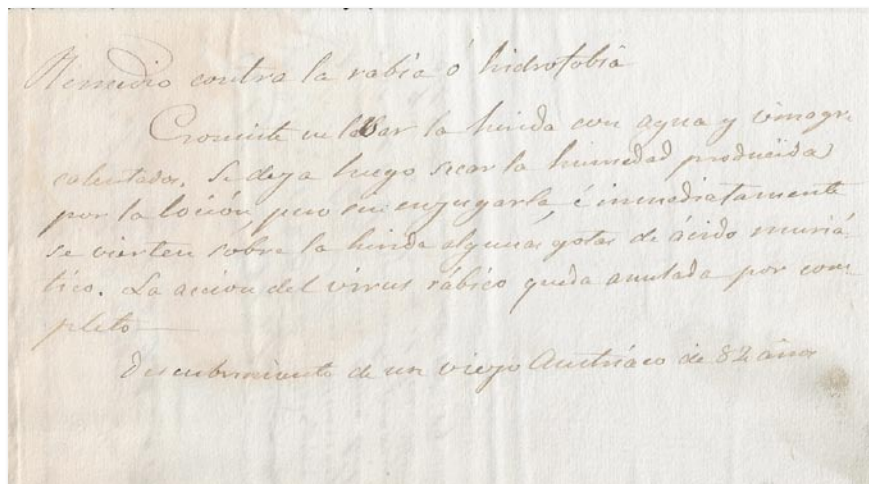 Remedio contra la rabia ó hidrofobia
Consiste en lavar la herida con agua y vinagre
calentados. Se deja luego secar la humedad producida
por la loción, pero sin enjugarla é inmediatamente
se vierten sobre la herida algunas gotas de ácido muriá-
tico. La accion del virus rábico queda anulada por com-
pleto
Descubrimiento de un viejo Austríaco de 82 años